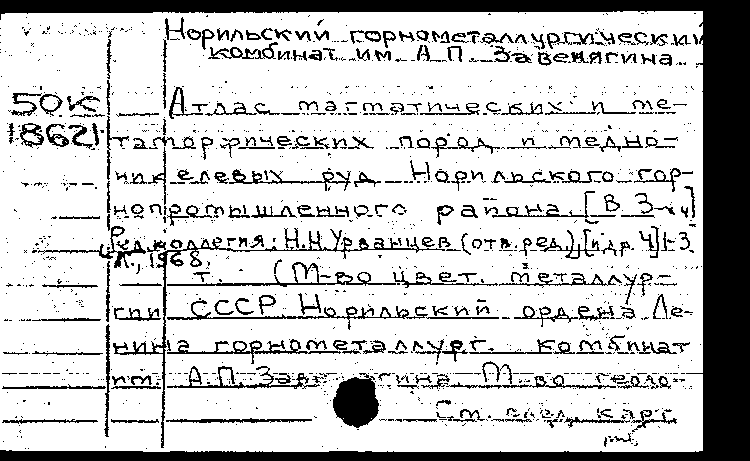 Норильский горнометаллургический
комбинат им. А.П. Завенягина.
50к Атлас магматических и ме-
18621 таморфических пород и медно-
никелевых руд Норильского гор-
нопромышленного района. [В 3-х ч]
Редколлегия: Н.Н.Урванцев (отв.ред.), [и др. Ч] 1-3
Л., 1968.
т. (М-во цвет. металлур-
гии СССР. Норильский ордена Ле-
нина горнометаллург. комбинат
им. А.П. Завенягина. М-во геоло-
См. след. карт